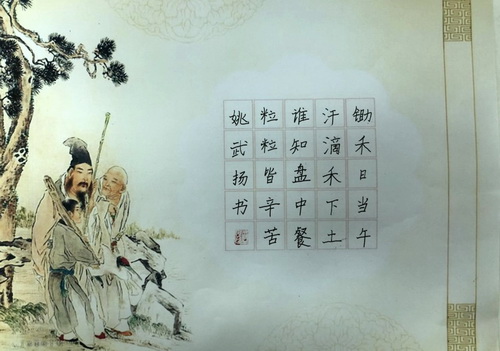 锄禾日当午
汗滴禾下土
谁知盘中餐
粒粒皆辛苦
姚武扬书